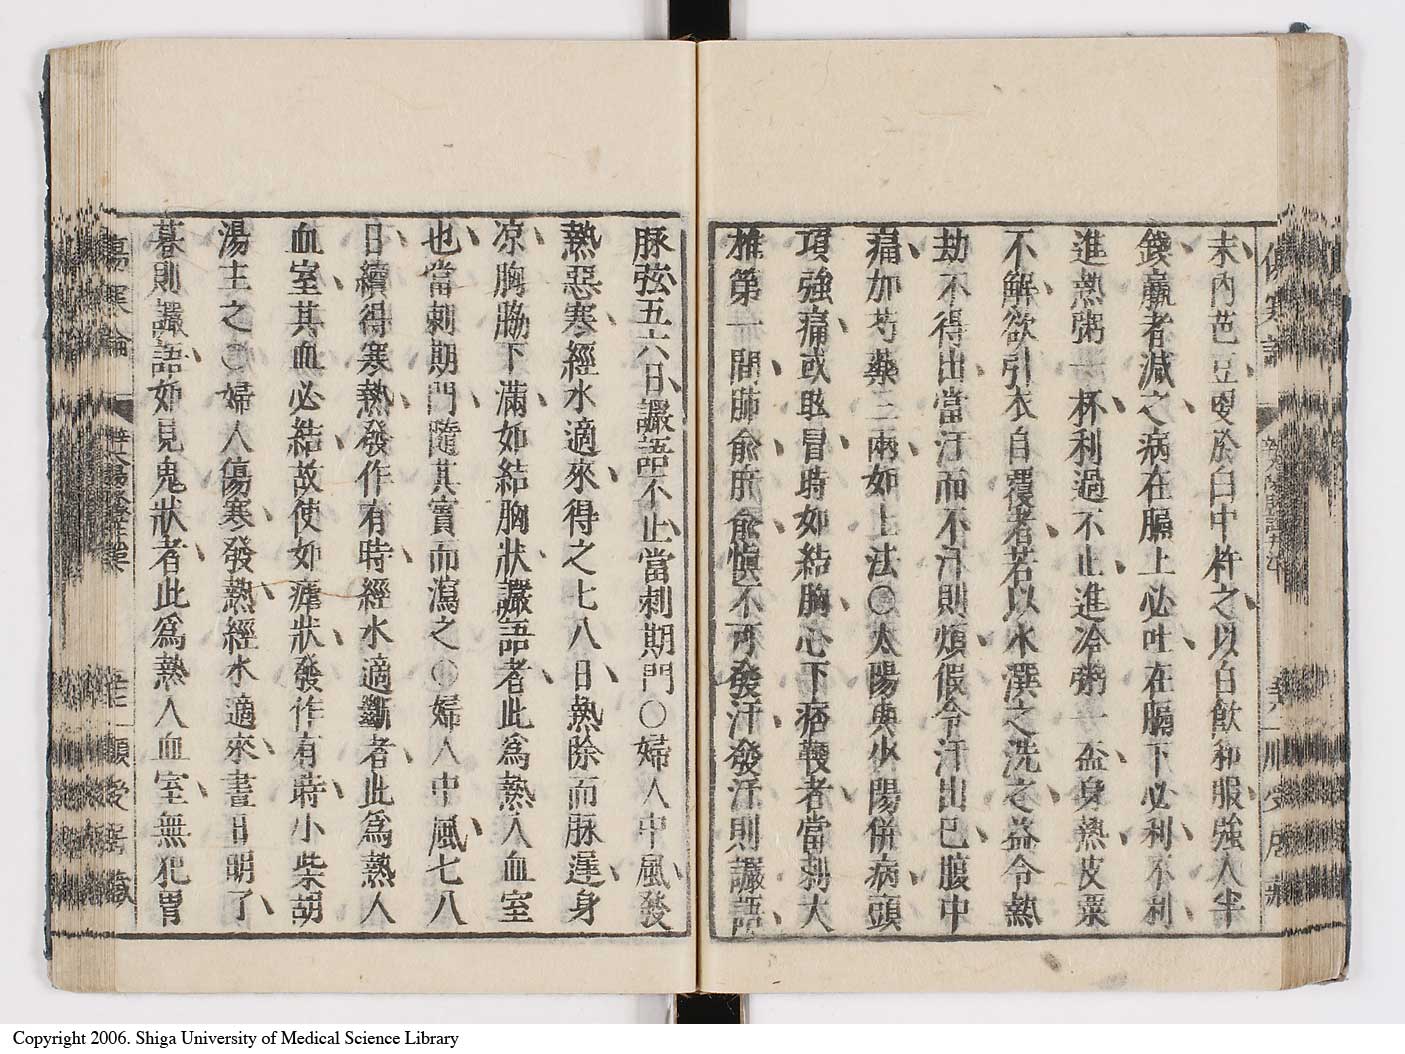 末內芭豆更於臼中杵之以白飲和服強人半
錢羸者減之病在膈上必吐在膈下必利不利
進熱粥一杯利過不止進冷粥一盃身熱皮粟
不解欲引衣自覆者若以水潠之洗之益令熱
劫不得出當汗而不汗則煩假令汗出已腹中
痛加芍藥三兩如上法〇太陽與少陽併病頭
項強痛或眩冒時如結胸心下痞鞕者當刺大
椎第一間肺俞肝俞慎不可發汗發汗則讝語
脉弦五六日讝語不止當刺期門〇婦人中風發
熱惡寒經水適來得之七八日熱除而脉遲身
凉胸脇下滿如結胸狀讝語者此爲熱入血室
也當刺期門隨其實而瀉之〇婦人中風七八
日續得寒熱發作有時經水適斷者此爲熱入
血室其血必結故使如瘧狀發作有時小柴胡
湯主之〇婦人傷寒發熱經水適來晝日明了
暮則讝語如見鬼狀者此爲熱入血室無犯胃
傷寒論
Copyright 2006. Shiga University of Medical Science Library